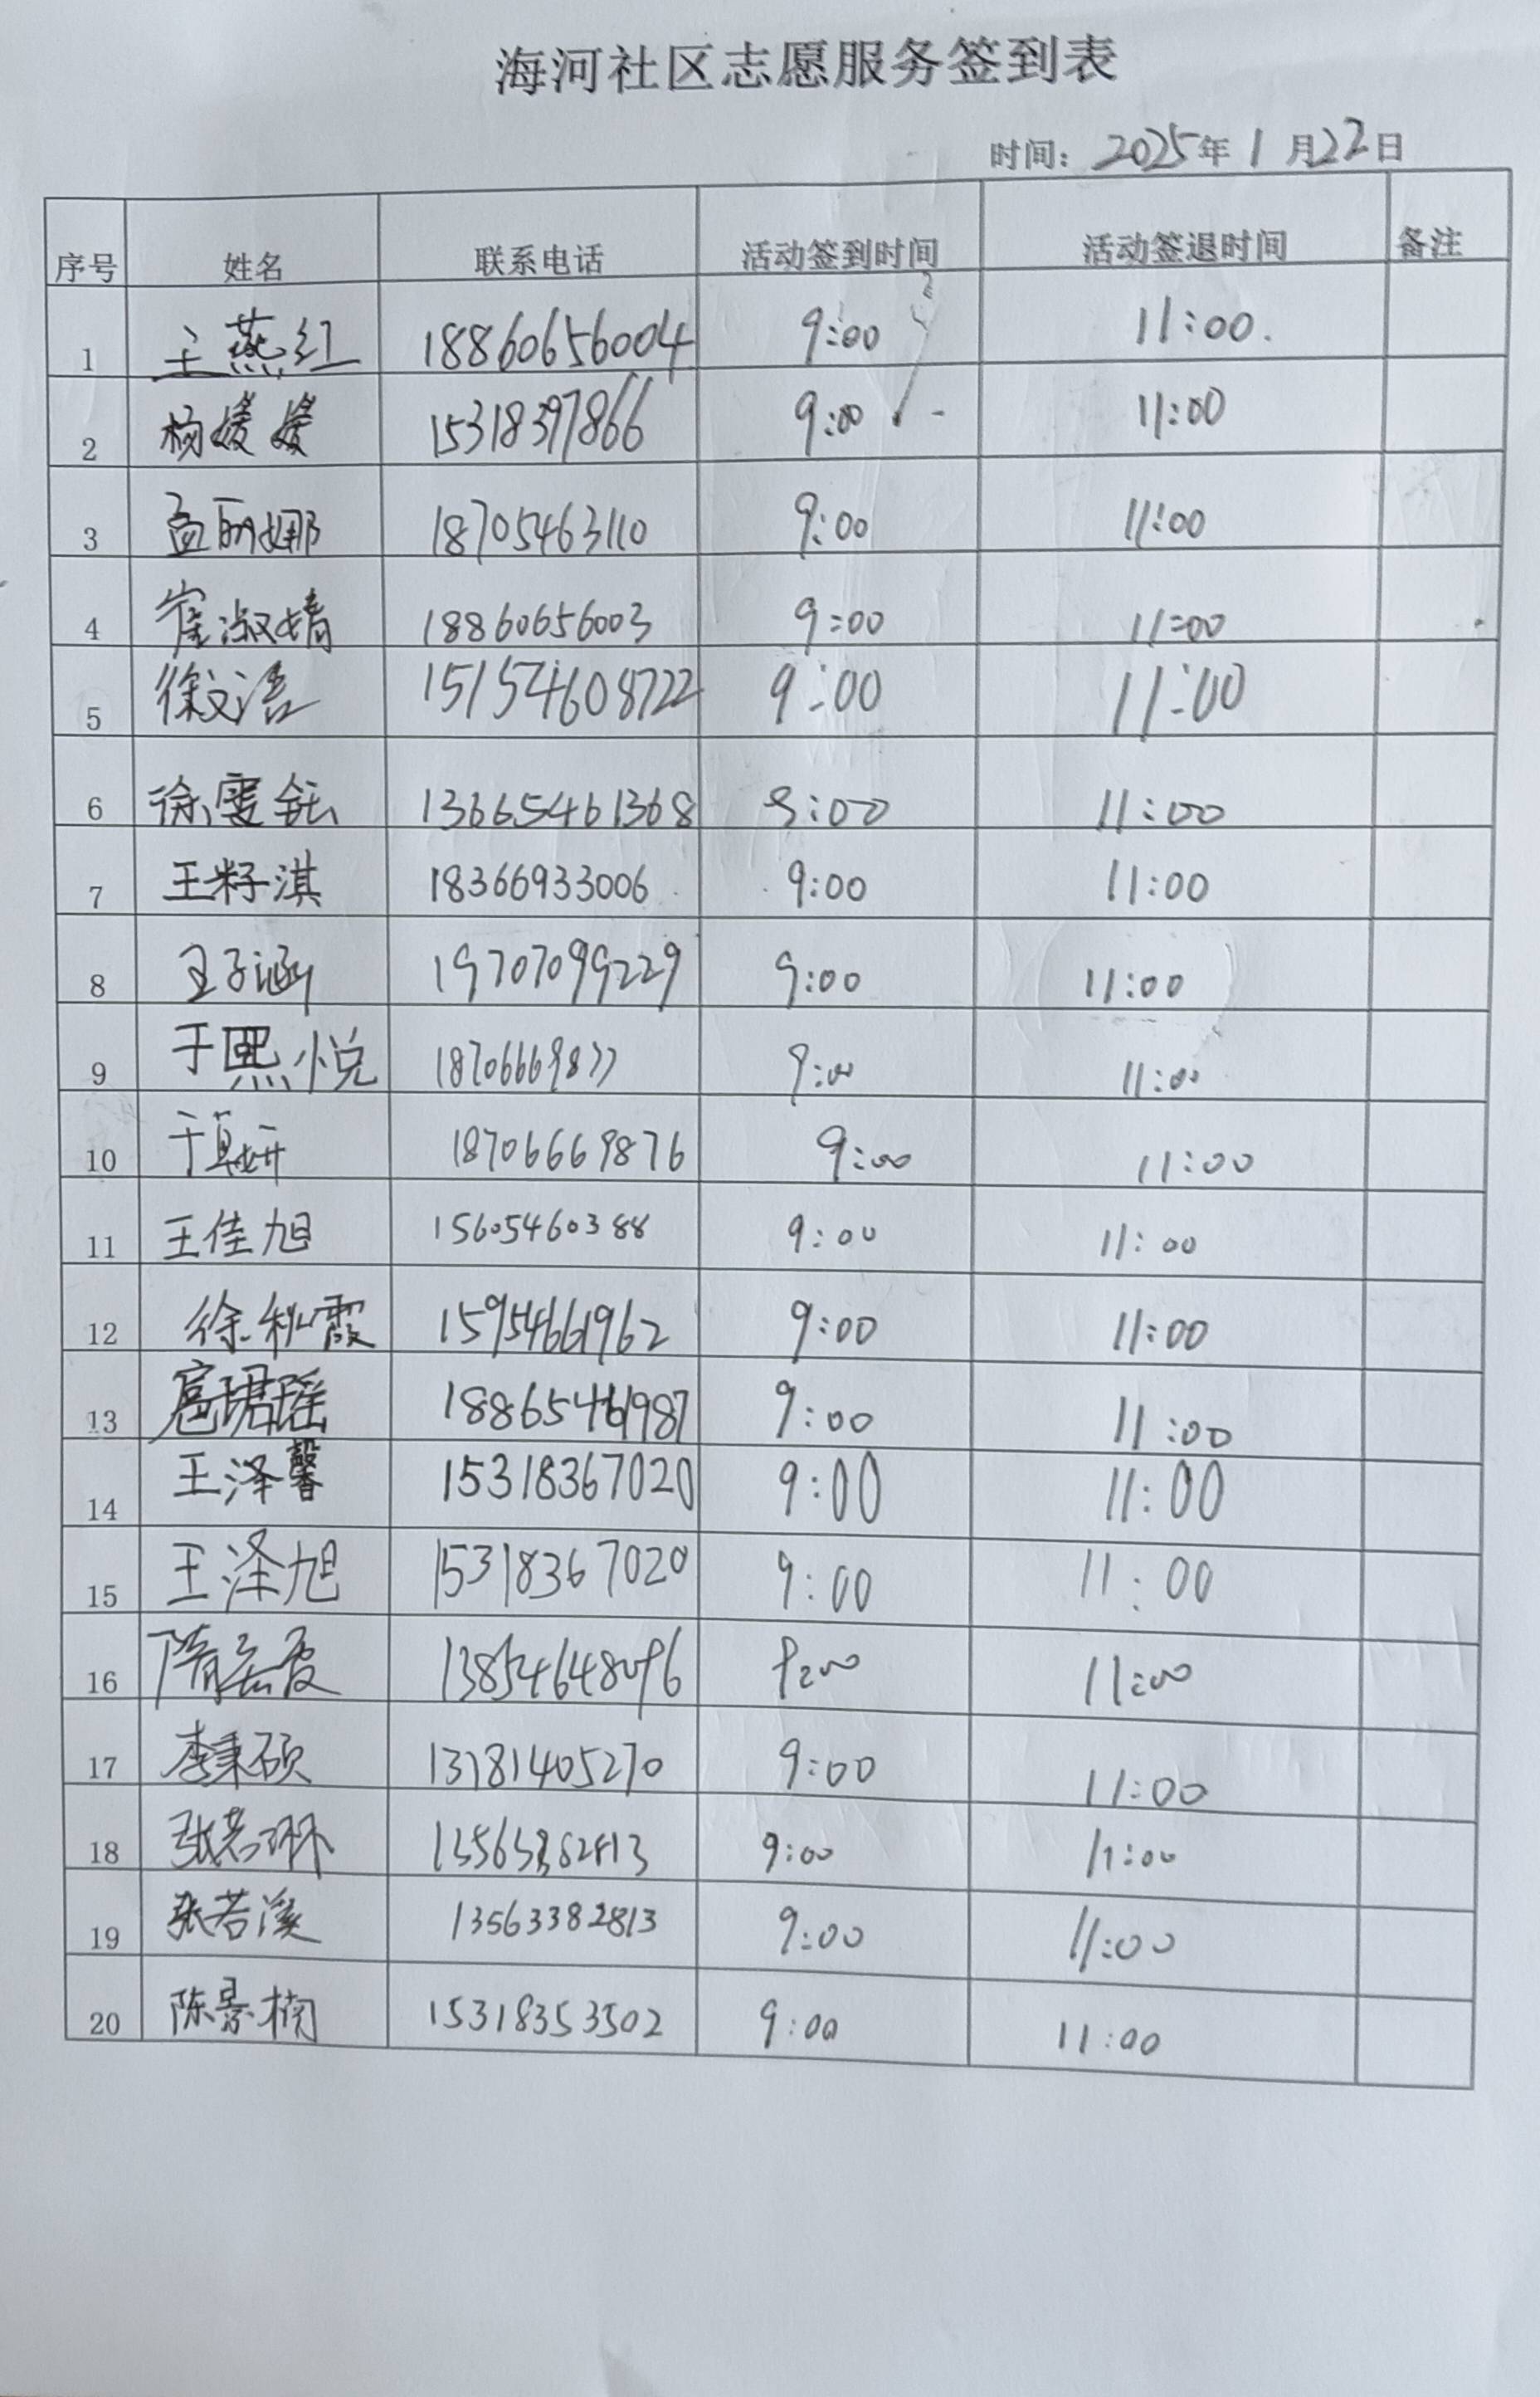 海河社区志愿服务签到表
时间：2025年1月22日
序号 姓名 联系电话 活动签到时间 活动签退时间 备注
1 王燕红 18860656004 9:00 11:00.
2 杨媛媛 15318397866 9:00 11:00
3 孟丽娜 18705463110 9:00 11:00
4 崔淑婧 18860656003 9:00 11:00
5 徐文浩 15154608722 9:00 11:00
6 徐雯钰 13665461368 9:00 11:00
7 王籽淇 18366933006 9:00 11:00
8 王子涵 19707099229 9:00 11:00
9 于熙悦 18706669877 9:00 11:00
10 于真妍 18706669876 9:00 11:00
11 王佳旭 15605460388 9:00 11:00
12 徐秋霞 15954661962 9:00 11:00
13 扈珺瑶 18865461987 9:00 11:00
14 王泽馨 15318367020 9:00 11:00
15 王泽旭 15318367020 9:00 11:00
16 隋 霞 13854648096 9:00 11:00
17 李秉硕 13781405270 9:00 11:00
18 张若琳 9:00 11:00
19 张若溪 13563382813 9:00 11:00
20 陈景楠 15318353502 9:00 11:00